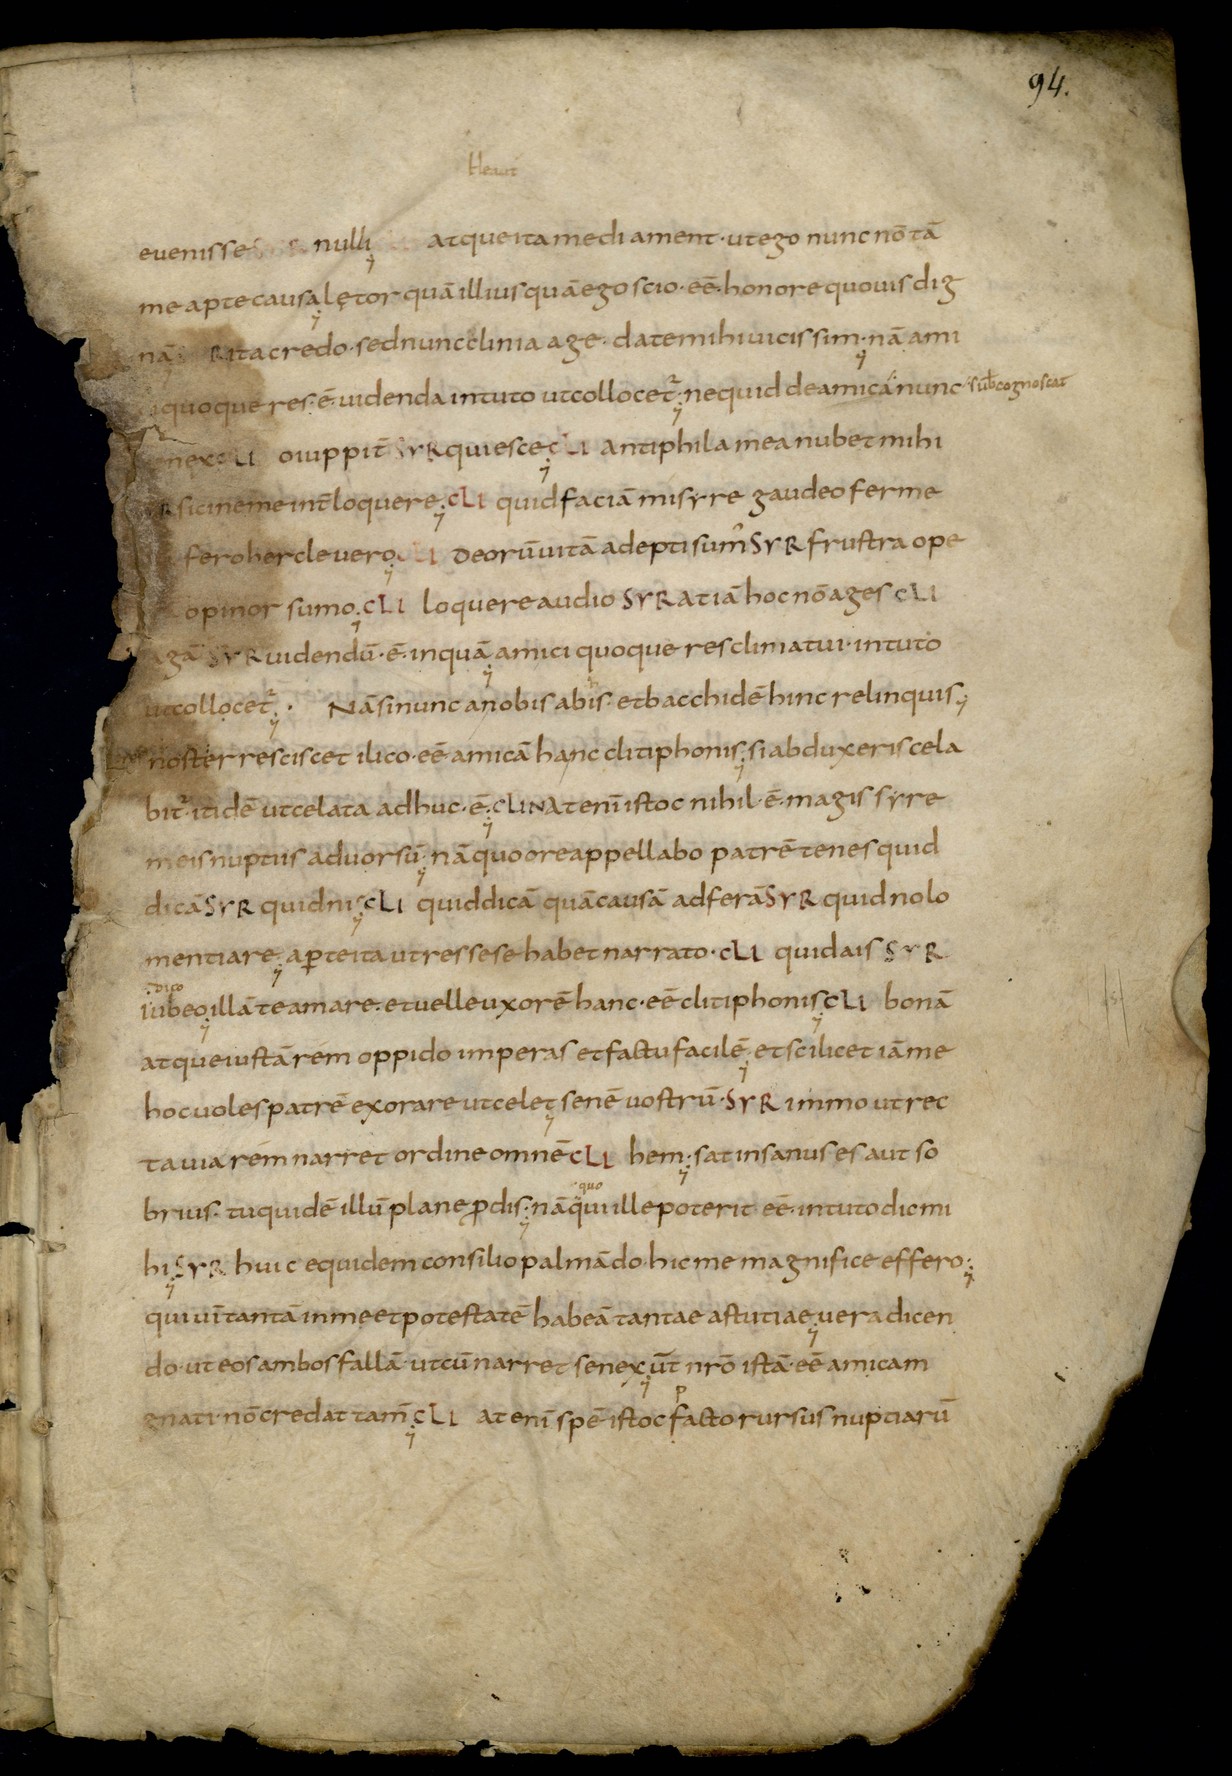 94.
Heaut
evenisse SYR nulli; atque ita me di ament · ut ego nunc nō tā
me apte causa; lętor quā illius quā ego scio · eē · honore quovis dig
nā R ita credo · sed nunc clinia age · da te mihi vicissim · nā ami
quoque res · ē · videnda in tuto ut collocet᷑; nequid de amica nunc sub cognoscat
enex CLI o iuppit̄ SYR quiesce; CLI antiphila mea nubet mihi
R sicine me int̄loquere; CLI quid faciā mi syre gaudeo fer me
fero hercle vero; CLI deorū vitā adepti sum᷒ SYR frustra ope
opinor sumo; CLI loquere audio SYR at iā hoc nō ages CLI
agā SYR videndū · ē · inquā; amici quoque res clinia tui · in tuto
ut collocet᷑; · Nā si nunc a nobis abis · et bacchidē hinc relinquis;
noster resciscet ilico · eē amicā hanc clitiphonis; si abduxeris cela
bit᷑ · itidē ut celata adhuc · ē; CLIN At eni istoc nihil · ē · magis syre
meis nuptiis advorsū; nā quo ore appellabo patrē tenes quid
dicā SYR quidni; CLI quid dicā quā causā adferā SYR quid nolo
mentiare; aꝑte ita ut res sese habet narrato · CLI quid ais SYR
: dico
iubeo; illā te amare · et velle uxorē hanc · eē clitiphonis; CLI bonā
atque iustā rem oppido imperas et factu facilē; et scilicet iā me
hoc voles patrē exorare ut celet; senē vostrū · SYR immo ut rec
ta via rem narret ordine omnē CLI hem; satin sanus es aut so
quo
brius · tu quidē illū plane ꝓdis; nā qui ille poterit eē · in tuto dic mi
hi; SYR huic equidem consilio palmā do · hic me magnifice effero;
qui vī tantā in me et potestatē habeā tantae astutiae; vera dicen
do · ut eos ambos fallā · ut cū narret senex; ūt nrō istā · eē amicam
gnati · nō credat tam̄; CLI at eni spē istoc pacto rursus nuptiarū